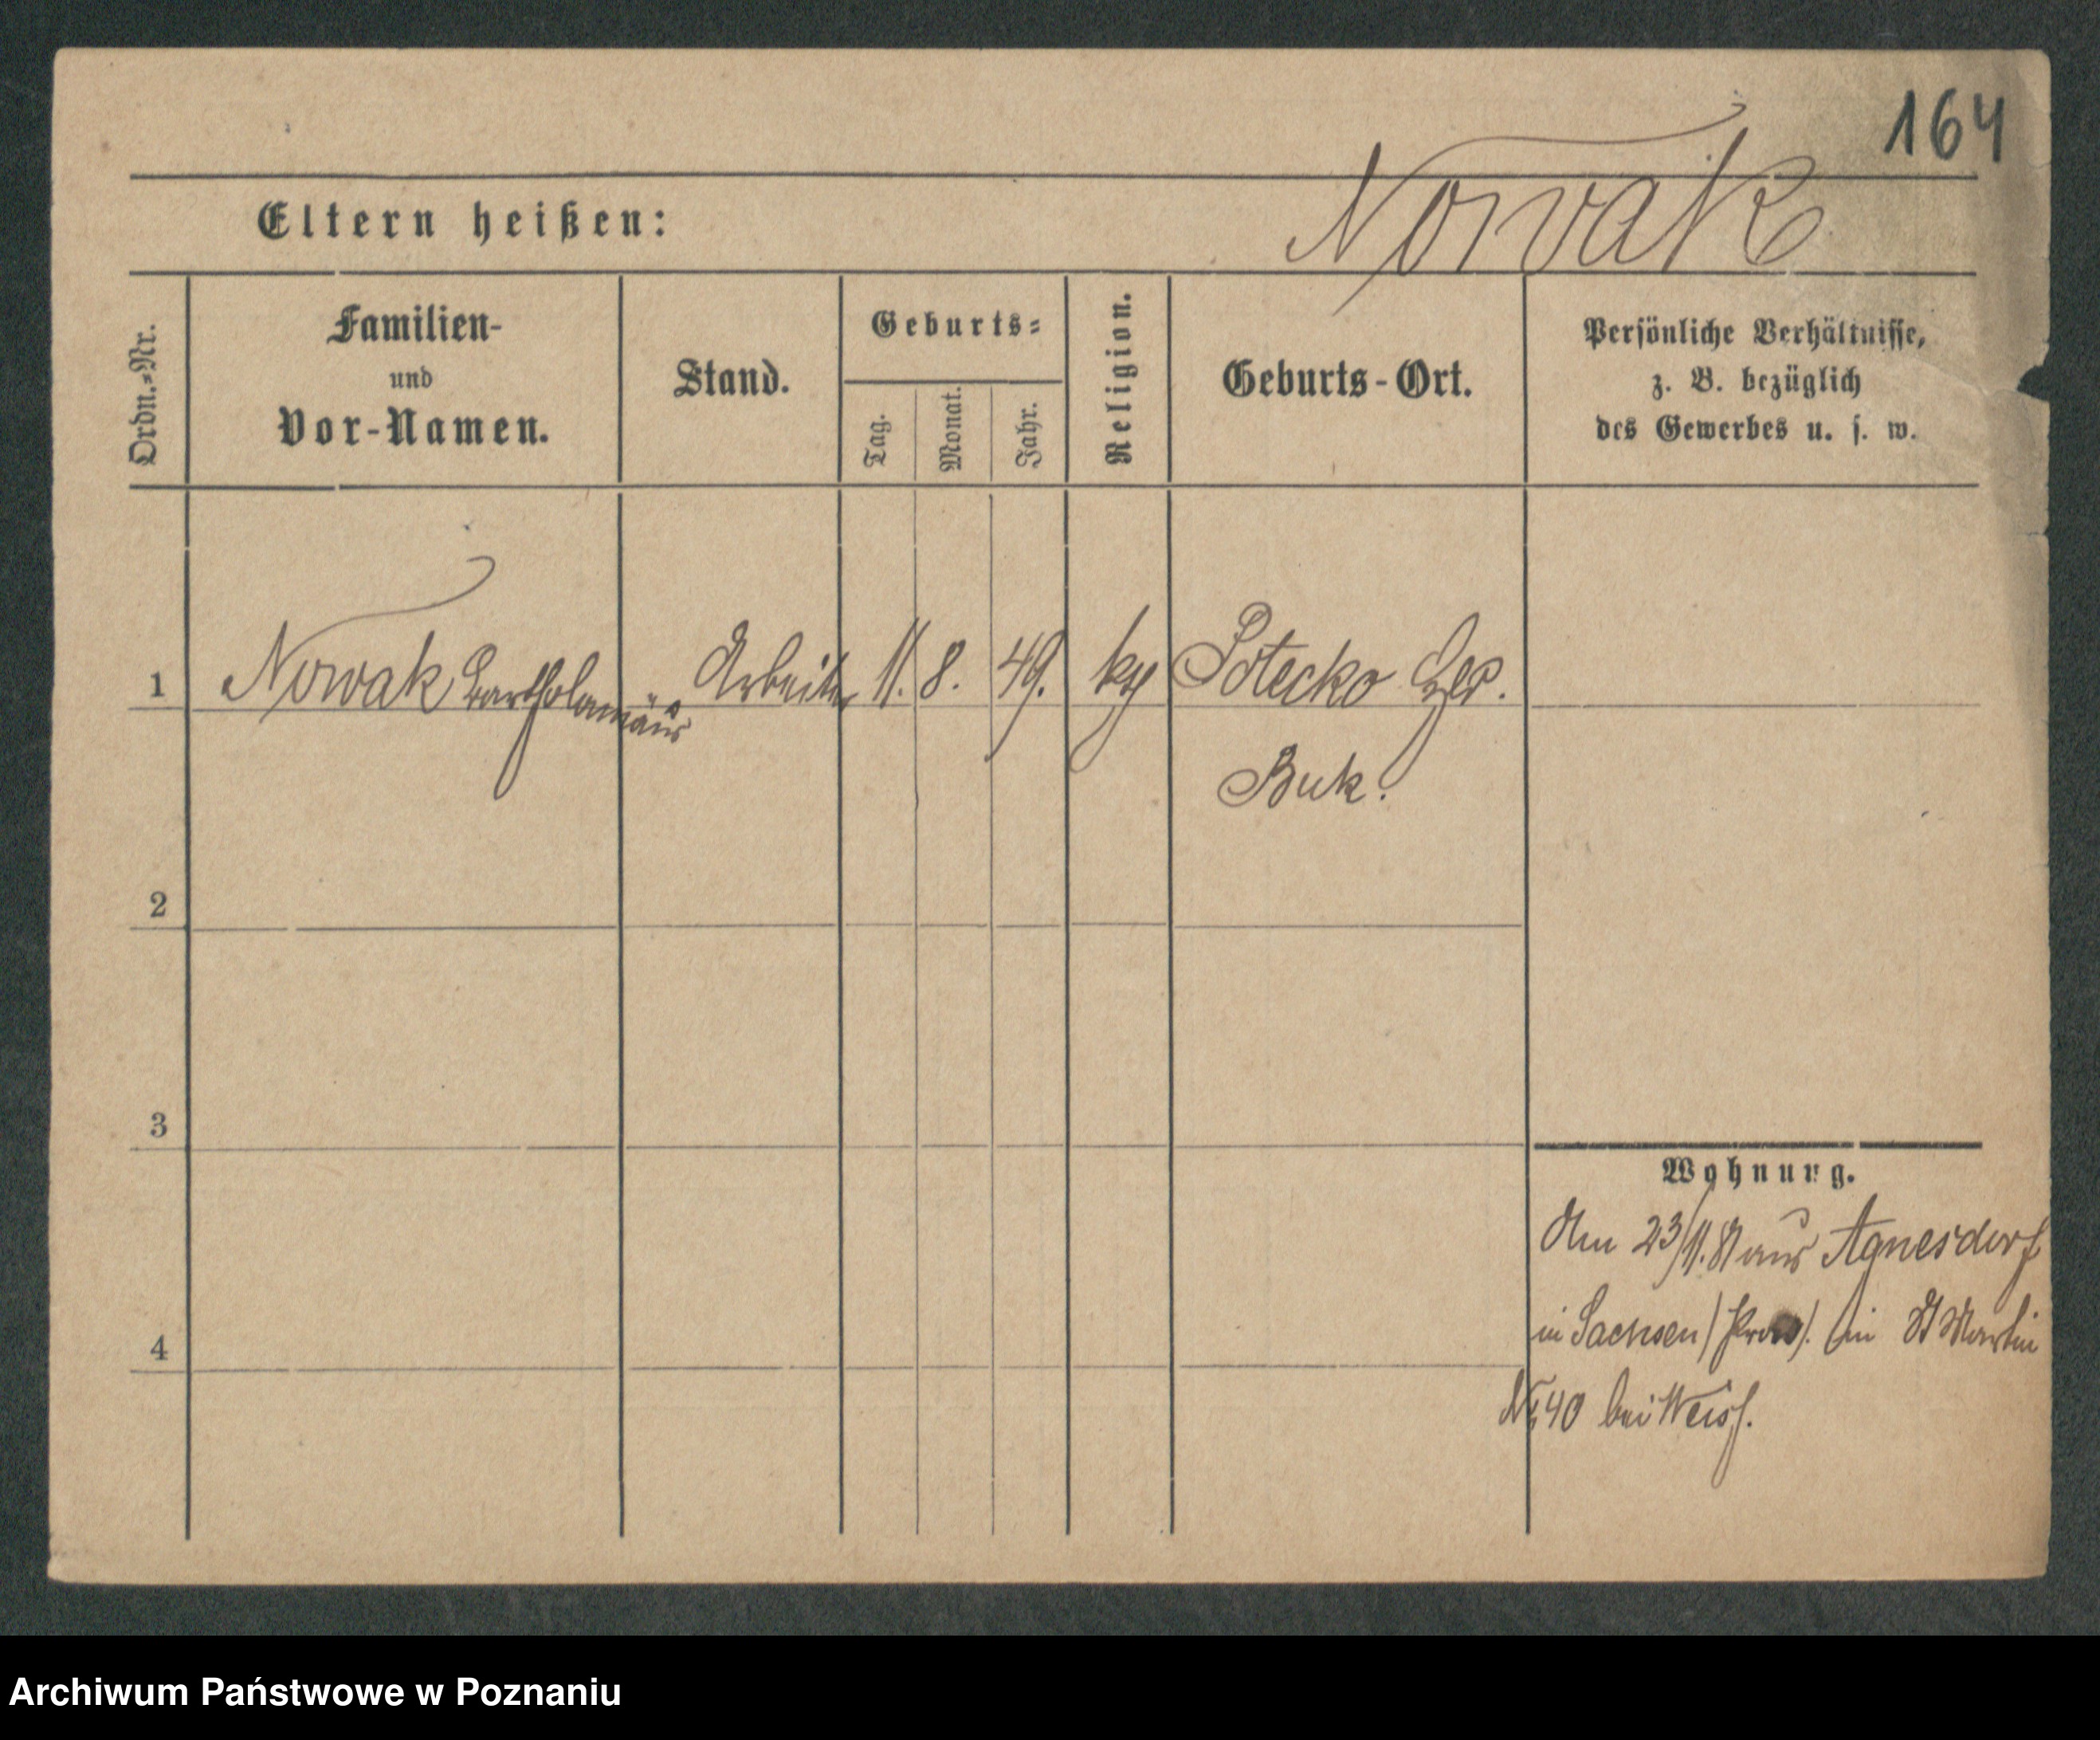 164
Eltern heißen:
Nowak
Ordn.-Nr.
Familien-
und
Vor-Namen.
Stand.
Geburts-
Tag.
Monat.
Jahr.
Religion.
Geburts-Ort.
Persönliche Verhältnisse,
z. B. bezüglich
des Gewerbes u. s. w.
1 Nowak Bartholomäus Arbeiter 11. 8. 49. Potecko
Buk.
2
3
Wohnung.
Am 23/11. 81 aus Agnesdorf
in Sachsen in St Martin
4
No 40 bei Weiss.
Archiwum Państwowe w Poznaniu